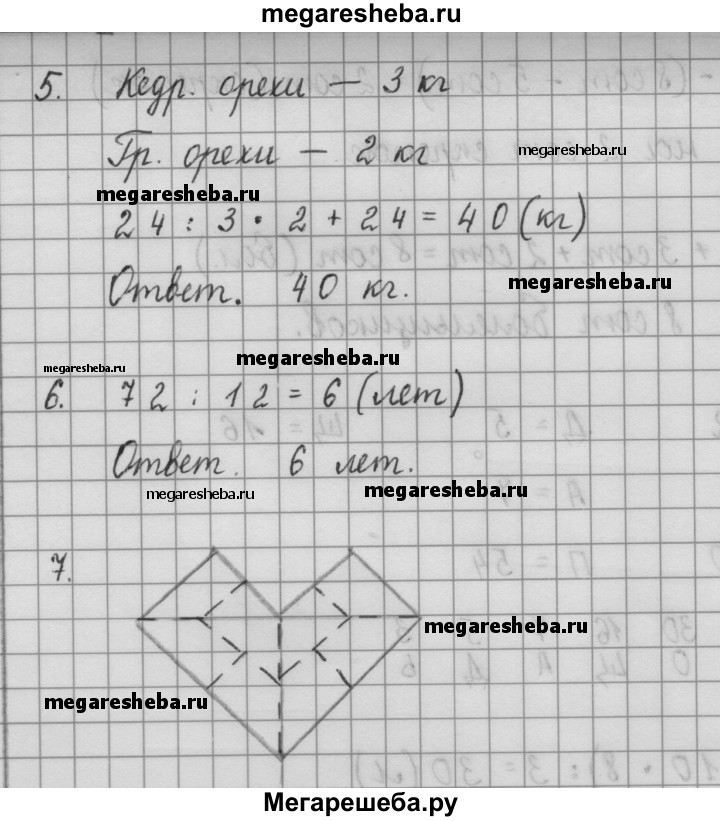 megaresheba.ru
5. Кедр. орехи — 3 кг
Гр. орехи — 2 кг
megaresheba.ru
megaresheba.ru
24 : 3 · 2 + 24 = 40 (кг)
Ответ. 40 кг.
megaresheba.ru
megaresheba.ru
megaresheba.ru
6. 72 : 12 = 6 (лет)
Ответ. 6 лет.
megaresheba.ru
megaresheba.ru
7.
megaresheba.ru
megaresheba.ru
Мегарешеба.ру